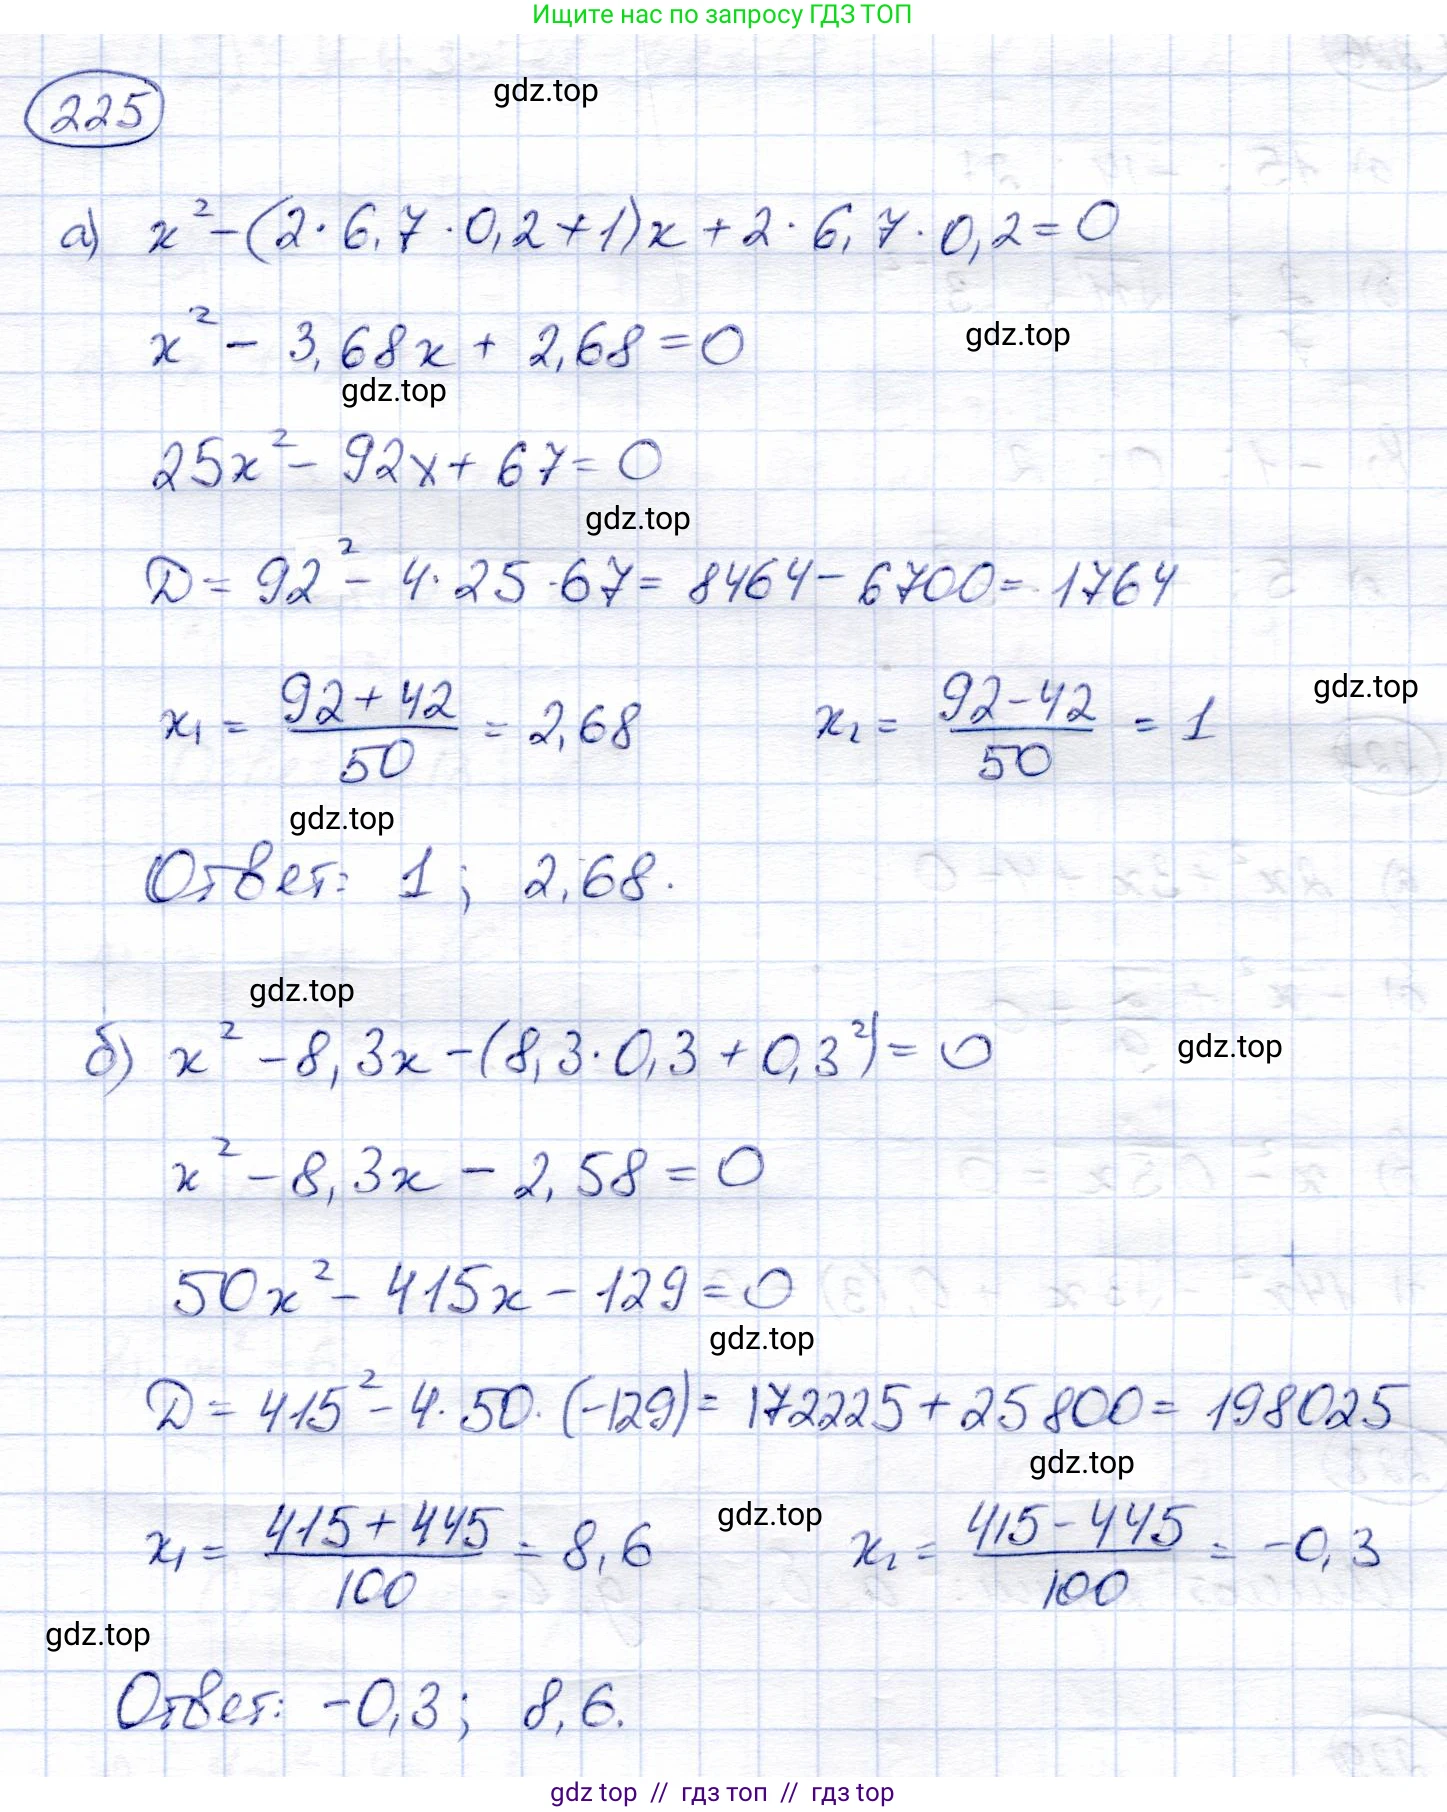 Ищите нас по запросу ГДЗ ТОП
225
gdz.top
а) x² - (2 · 6,7 · 0,2 + 1)x + 2 · 6,7 · 0,2 = 0
x² - 3,68x + 2,68 = 0
gdz.top
gdz.top
25x² - 92x + 67 = 0
gdz.top
D = 92² - 4 · 25 · 67 = 8464 - 6700 = 1764
x₁ = (92 + 42)/50 = 2,68 x₂ = (92 - 42)/50 = 1
gdz.top
gdz.top
Ответ: 1; 2,68.
gdz.top
б) x² - 8,3x - (8,3 · 0,3 + 0,3²) = 0
gdz.top
x² - 8,3x - 2,58 = 0
50x² - 415x - 129 = 0
gdz.top
D = 415² - 4 · 50 · (-129) = 172225 + 25800 = 198025
gdz.top
x₁ = (415 + 445)/100 = 8,6 x₂ = (415 - 445)/100 = -0,3
gdz.top
gdz.top
Ответ: -0,3; 8,6.
gdz top // гдз топ // гдз top